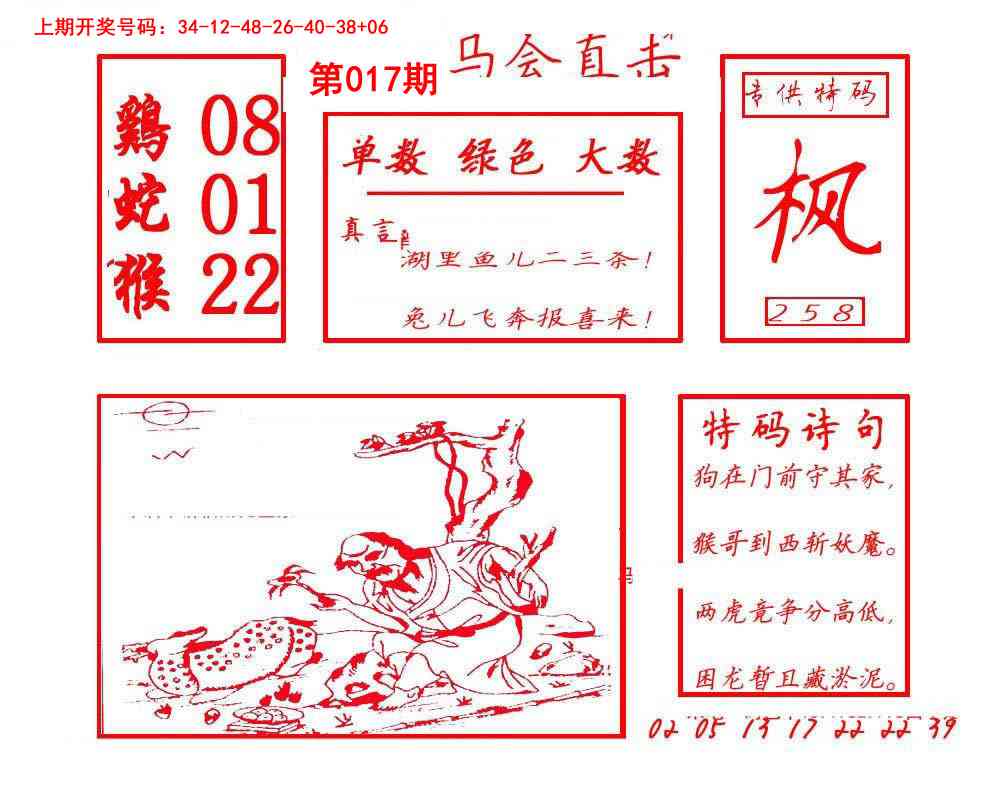 上期开奖号码：34-12-48-26-40-38+06
第017期
马会直击
鷄 08
蛇 01
猴 22
单数 绿色 大数
真言
湖里鱼儿二三条！
兔儿飞奔报喜来！
专供特码
枫
258
特码诗句
狗在门前守其家，
猴哥到西斩妖魔。
两虎竞争分高低，
困龙暂且藏淤泥。
02 05 15 17 22 22 39